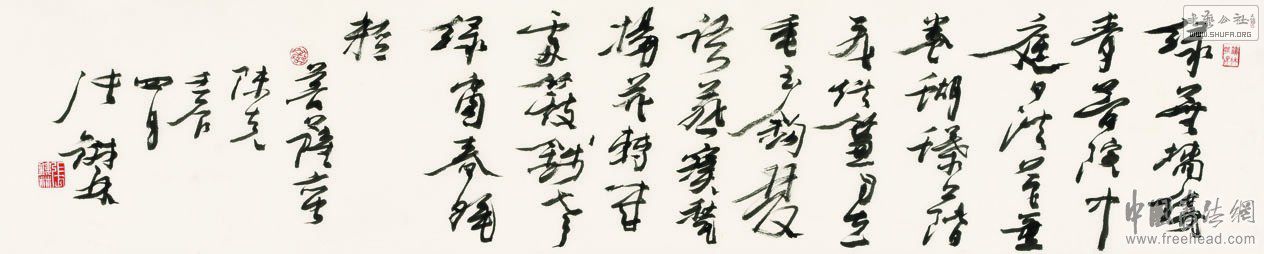 綠蕪牆繞
青苔院中
庭日淡芭蕉
卷蝴蝶上階
飛烘簾自在
垂玉鉤雙
語燕寶甃
楊花轉幾
處簸錢聲
綠窗春睡
輕
菩薩蠻
陳克
四月
張
书法公社
WWW.SHUFA.ORG
中國書法網
www.freehead.com